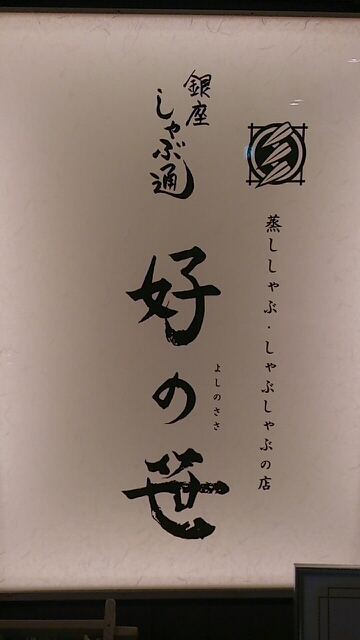 蒸ししゃぶ・しゃぶしゃぶの店
銀座
しゃぶ通
好の笹
よしのささ